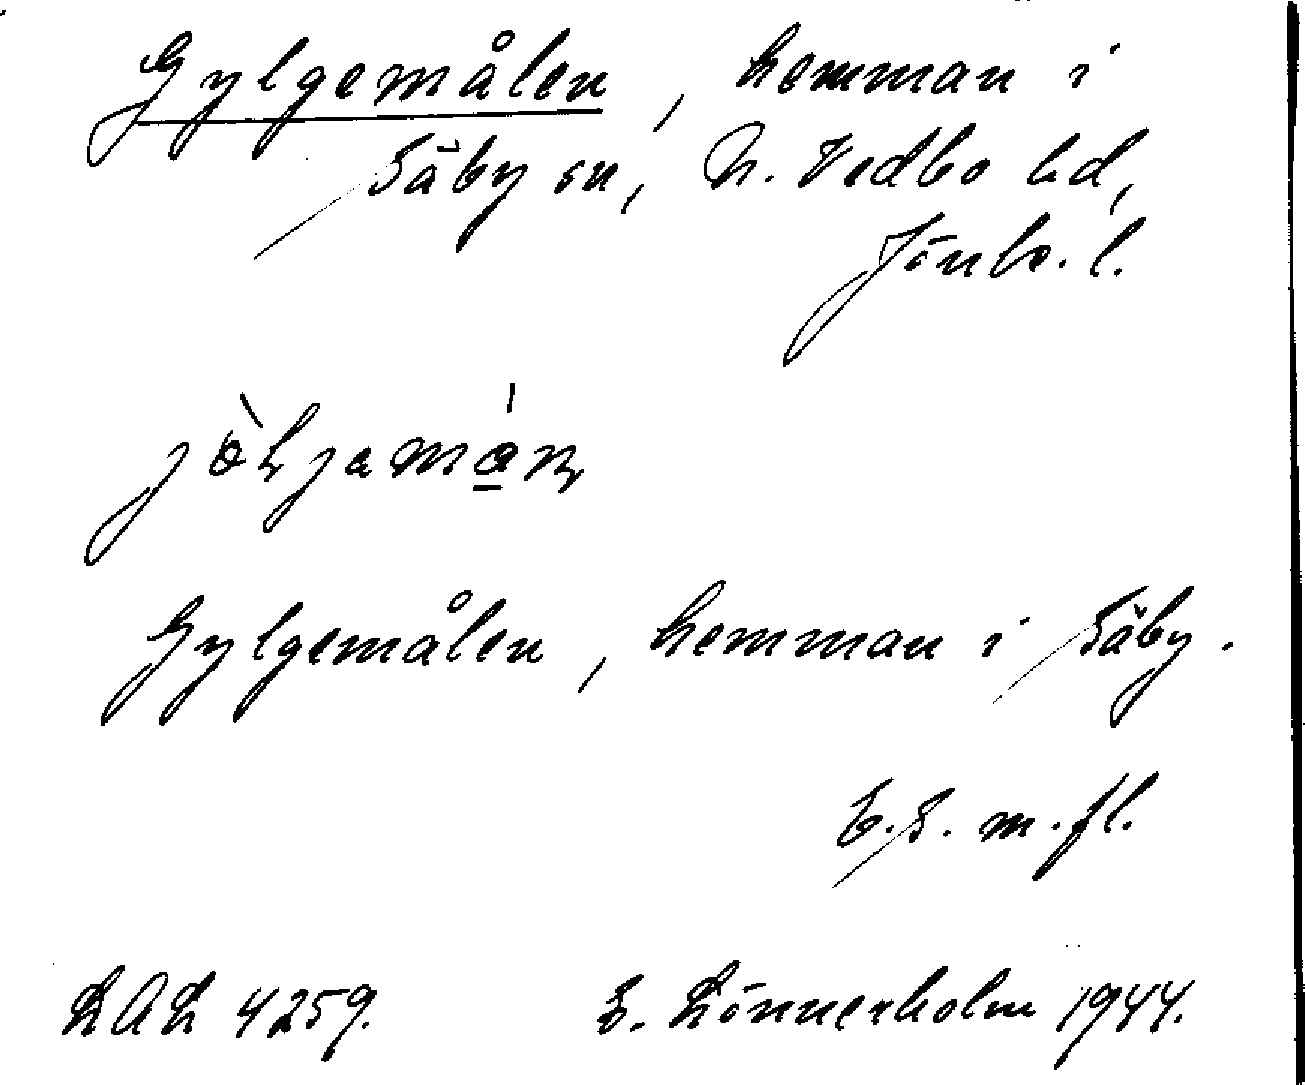 Gylgemålen, hemman i
Säby sn, N. Vedbo hd,
Jönk. l.
Gylgemålen, hemman i Säby.
E.S. m.fl.
LAL 4259. E. Lönnerholm 1944.